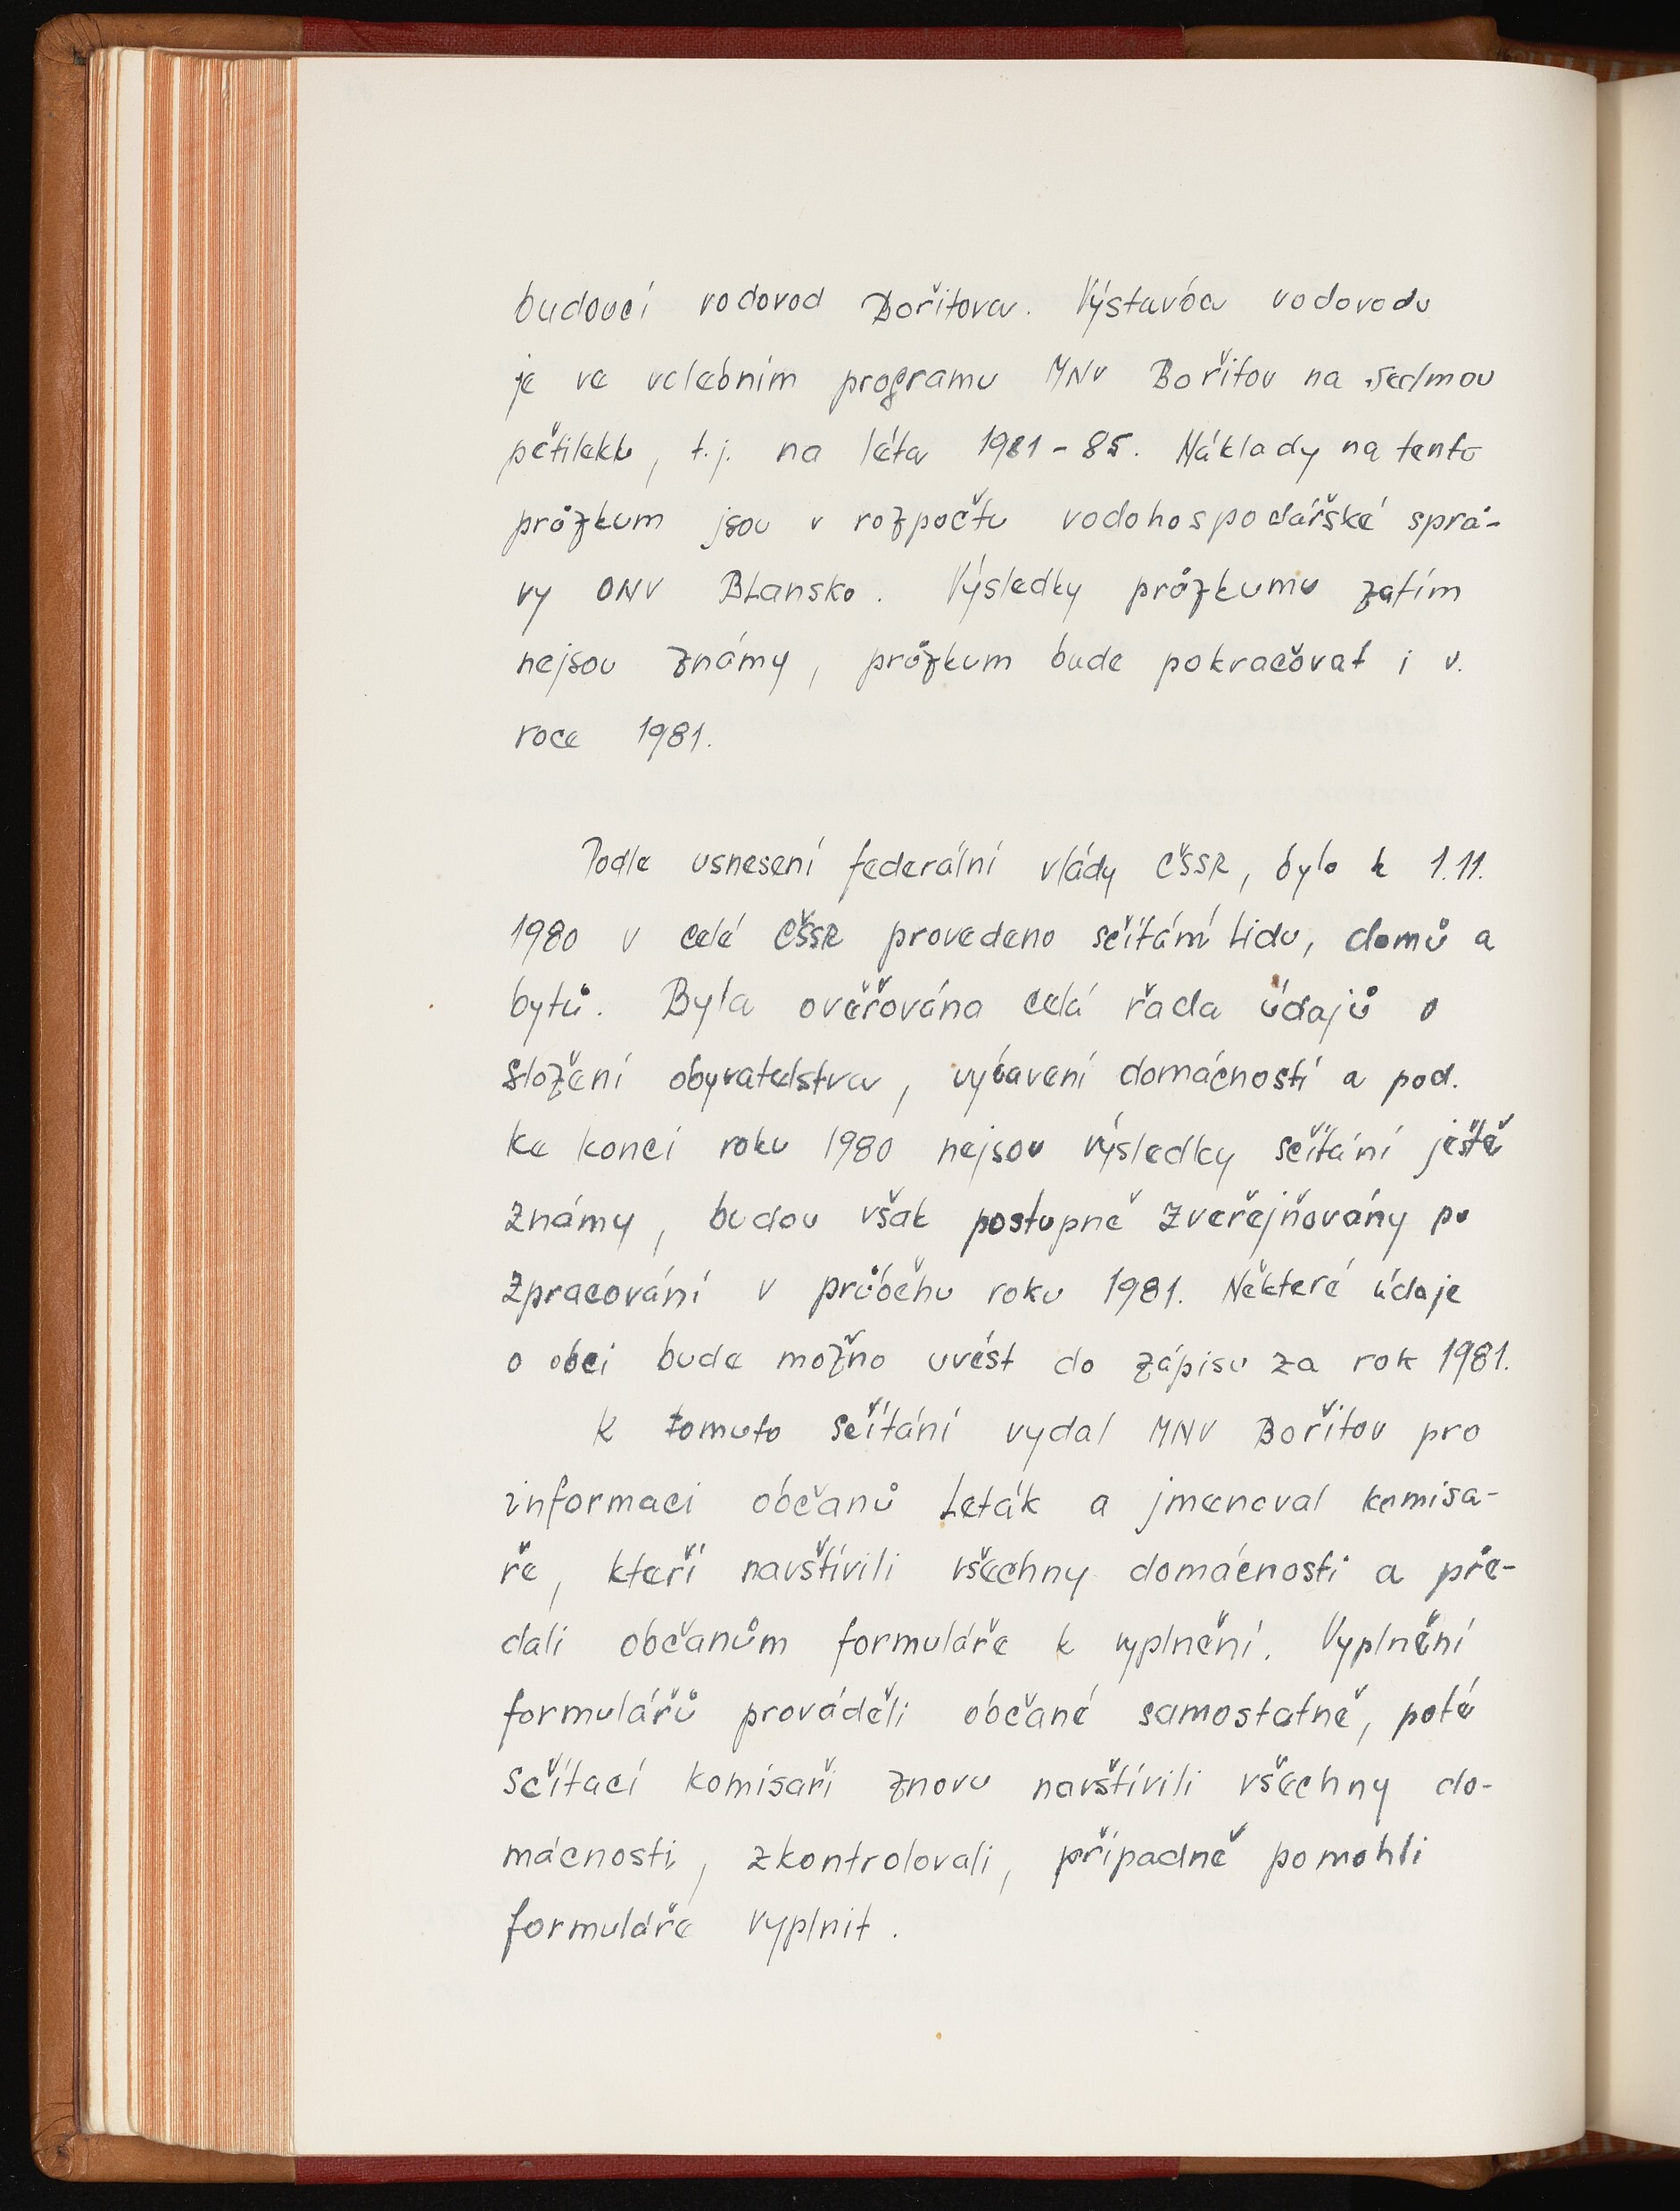 budoucí vodovod Bořitova. Výstavba vodovodu
je ve volebním programu MNV Bořitov na sedmou
pětiletku, t.j. na léta 1981-85. Náklady na tento
průzkum jsou v rozpočtu vodohospodářské sprá-
vy ONV Blansko. Výsledky průzkumu zatím
nejsou známy, průzkum bude pokračovat i v.
roce 1981.
Podle usnesení federální vlády ČSSR, bylo k 1.11.
1980 v celé ČSSR provedeno sčítání lidu, domů a
bytů. Byla ověřována celá řada údajů o
složení obyvatelstva, vybavení domácností a pod.
Ke konci roku 1980 nejsou výsledky sčítání ještě
známy, budou však postupně zveřejňovány po
zpracování v průběhu roku 1981. Některé údaje
o obci bude možno uvést do zápisu za rok 1981.
K tomuto sčítání vydal MNV Bořitov pro
informaci občanů leták a jmenoval komisa-
ře, kteří navštívili všechny domácnosti a pře-
dali občanům formuláře k vyplnění. Vyplnění
formulářů prováděli občané samostatně, poté
sčítací komisaři znovu navštívili všechny do-
mácnosti, zkontrolovali, případně pomohli
formuláře vyplnit.